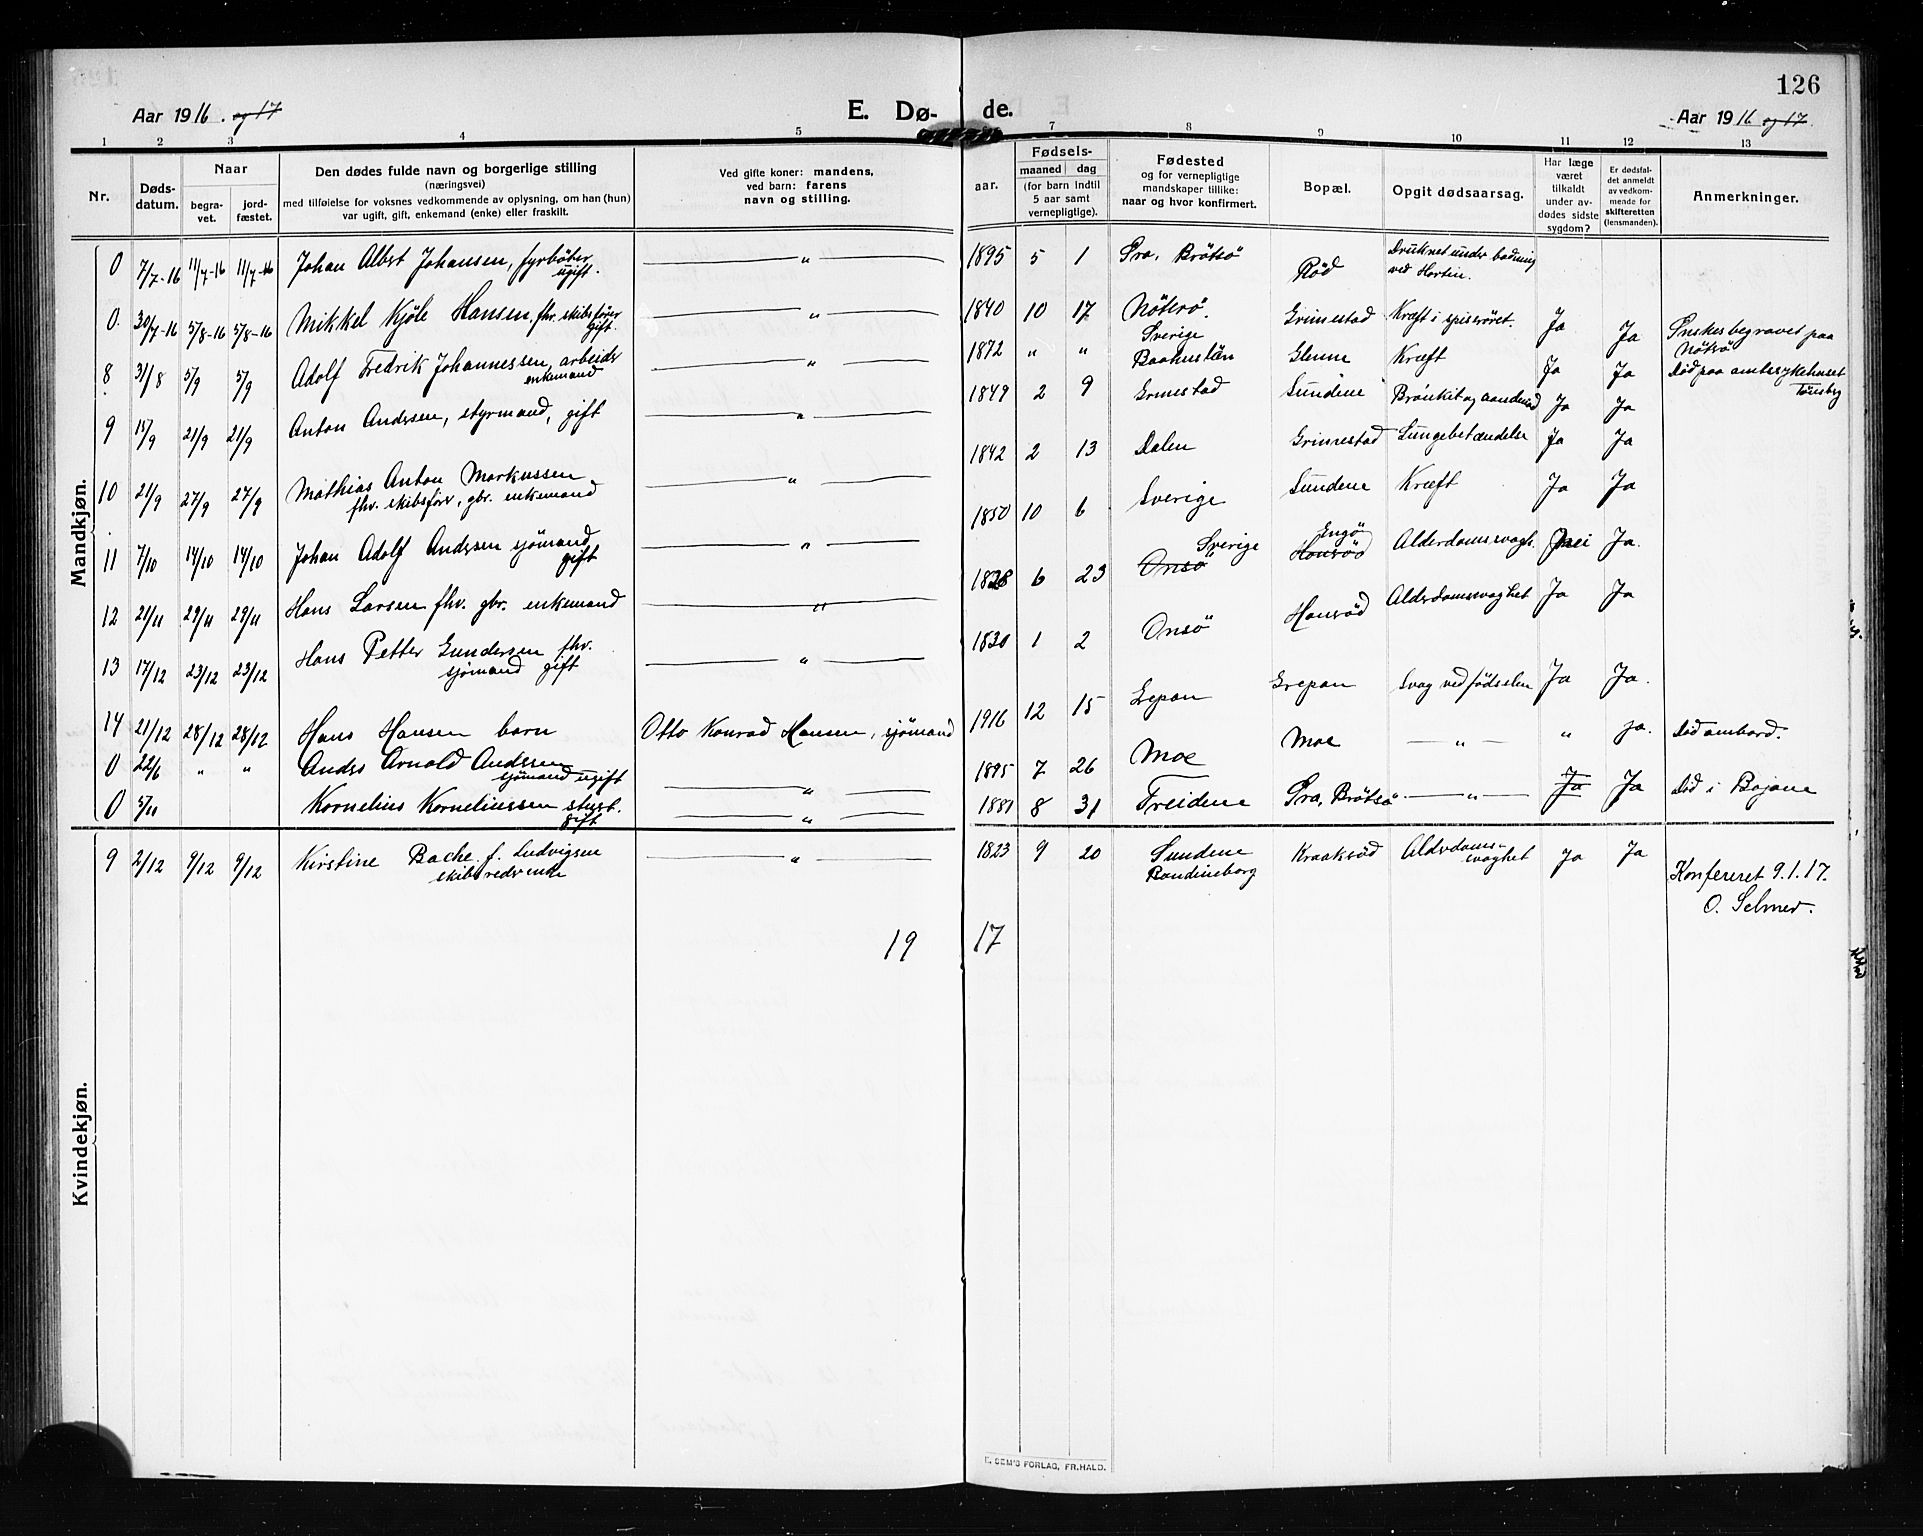 126
Aar 1916. og 17
E. Dø- de.
Aar 1916 og 17.
1 2 3 4 5 7 8 9 10 11 12 13
Nr.
Døds-
datum.
Naar
begra-
vet.
jord-
fæstet.
Den dødes fulde navn og borgerlige stilling
(næringsvei)
med tilføielse for voksnes vedkommende av oplysning, om han (hun)
var ugift, gift, enkemand (enke) eller fraskilt.
Ved gifte koner: mandens,
ved barn: farens
navn og stilling.
aar.
Fødsels-
maaned dag
(for barn indtil
5 aar samt
vernepligtige).
Fødested
og for vernepligtige
mandskaper tillike:
naar og hvor konfirmert.
Bopæl.
Opgit dødsaarsag.
Har læge
været
tilkaldt
under av-
dødes sidste
sygdom?
Er dødsfal-
det anmeldt
av vedkom-
mende for
skifteretten
(lensmanden).
Anmerkninger.
Mandkjøn.
0 7/7-16 11/7-16 11/7-16 Johan Albert Johansen, fyrbøter ugift. — " — 1895 5 1 Sra, Brøtsø Rød Druknet under badning ved Horten.
0. 30/7-16 5/8-16 5/8-16 Mikkel Kjøle Hansen, fhv. skibsfører gift. — " — 1840 10 17 Nøterø. Grimestad Kræft i spiserøret. Ja Ja Ønskes begravet paa Nøterø
8 31/8 5/9 5/9 Adolf Fredrik Johannessen, arbeider enkemand — " — 1872 " " Sverige Baahuslän Glenne Kræft Ja Ja Død paa amtssykehuset Tönsberg
9 15/9 21/9 21/9 Anton Andersen, styrmand, gift — " — 1849 2 9 Grimestad Sundene Bronkit og aandenød Ja Ja
10 21/9 27/9 27/9 Mathias Anton Markussen fhv. skibsfør, gbr. enkemand — " — 1842 2 13 Dalen Grimestad Lungebetændelse Ja Ja
11 7/10 14/10 14/10 Johan Adolf Andersen sjømand gift — " — 1850 10 6 Sverige Sundene Kræft Ja Ja
12 21/11 29/11 29/11 Hans Larsen fhv. gbr. enkemand — " — 1828 6 23 Onsø Sverige Hansrød Engø Alderdomssvagh. Nei Ja.
13 17/12 23/12 23/12 Hans Petter Gundersen fhv. sjømand gift — " — 1830 1 2 Onsø Hansrød Alderdomssvaghet Ja Ja
14 21/12 28/12 28/12 Hans Hansen barn Otto Konrad Hansen, sjømand 1916 12 15 Grepan Grepan Svag ved fødselen Ja Ja.
0 22/6 " " Anders Arnold Andersen sjømand ugift — " — 1895 7 26 Moe Moe — " — " ja. Død ombord.
0 5/11 Kornelius Korneliussen styrt. gift — " — 1881 8 31 Treidene Sra, Brøtsø — " — Ja Ja Død i Bojane
Kvindekjøn.
9 2/12 9/12 9/12 Kirstine Bache f. Ludvigsen skibsreder enke — " — 1823 9 20 Sundene Randineborg Kraakerød Alderdoms- svaghet Ja Ja
Konfereret 9.1.17.
O. Selmer.
19 17
E. SEM'S FORLAG, FR.HALD.